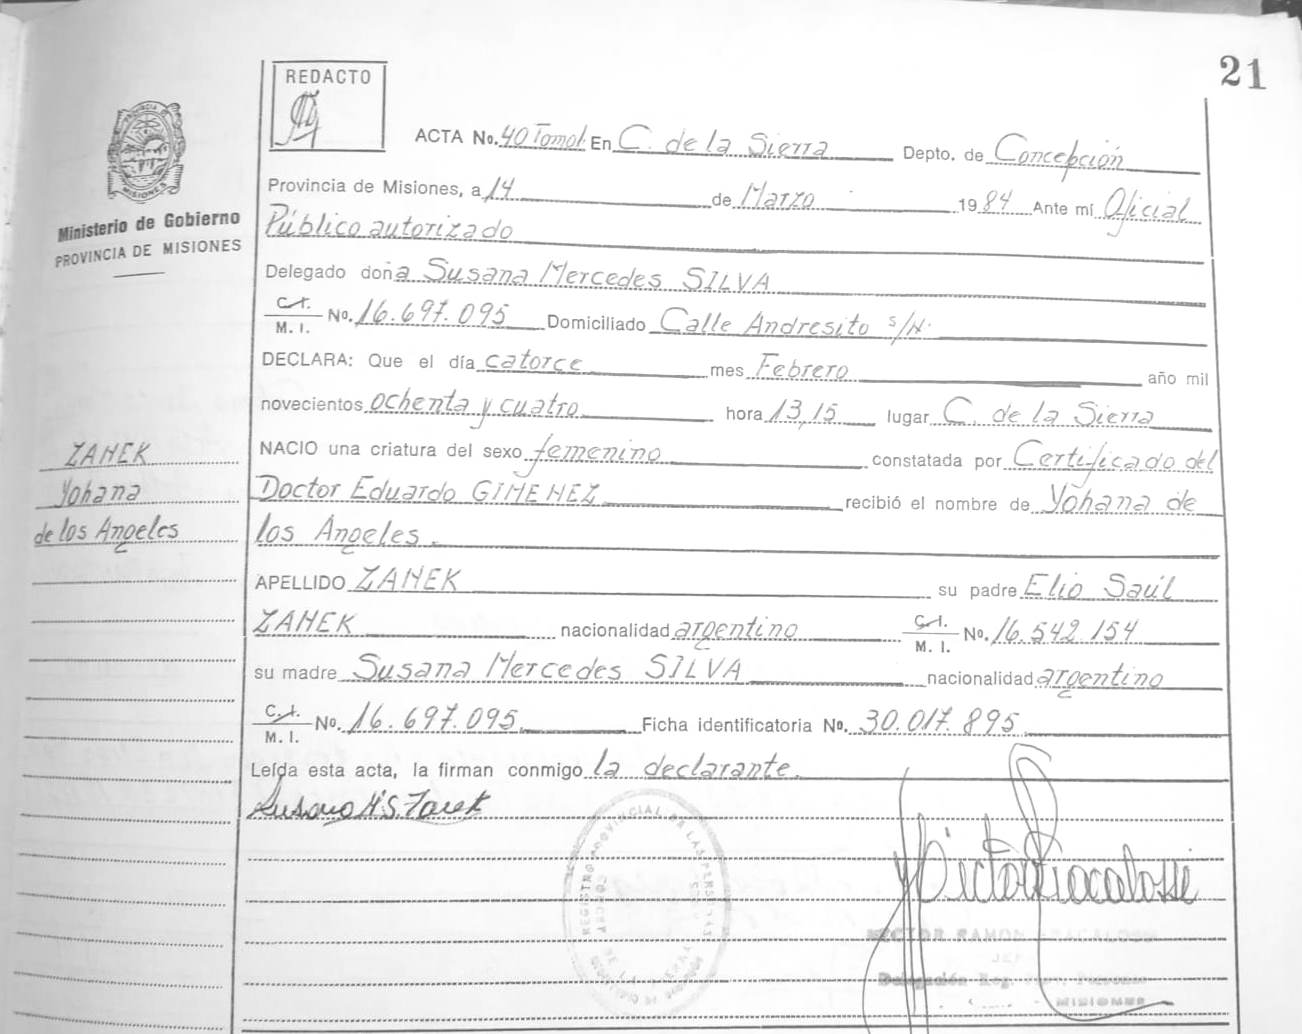 21
REDACTO
ACTA No. 40 Tomo I En C. de la Sierra Depto. de Concepción
Provincia de Misiones, a 14 de Marzo 1984 Ante mí Oficial
Público autorizado
Ministerio de Gobierno
PROVINCIA DE MISIONES
Delegado doña Susana Mercedes SILVA
C.I. M. I. No. 16.697.095 Domiciliado Calle Andresito s/N.
DECLARA: Que el día catorce mes Febrero año mil
novecientos ochenta y cuatro hora 13,15 lugar C. de la Sierra
NACIO una criatura del sexo femenino constatada por Certificado del
Doctor Eduardo GIMENEZ recibió el nombre de Yohana de
los Angeles.
ZANEK
Yohana
de los Angeles
APELLIDO ZANEK su padre Elio Saúl
ZANEK nacionalidad argentino C.I. M. I. No. 16.542.154
su madre Susana Mercedes SILVA nacionalidad argentino
C.I. M. I. No. 16.697.095 Ficha identificatoria No. 30.017.895
Leída esta acta, la firman conmigo la declarante.
Susana M S. Zanek
REGISTRO PROVINCIAL DE LAS PERSONAS
HECTOR RAMON
Delegación Reg. Prov. Personas
MISIONES